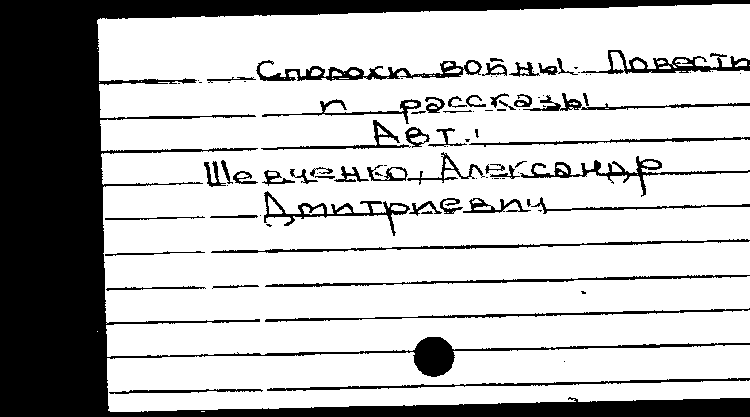 Сполохи войны. Повести
и рассказы.
Авт.:
Шевченко, Александр
Дмитриевич